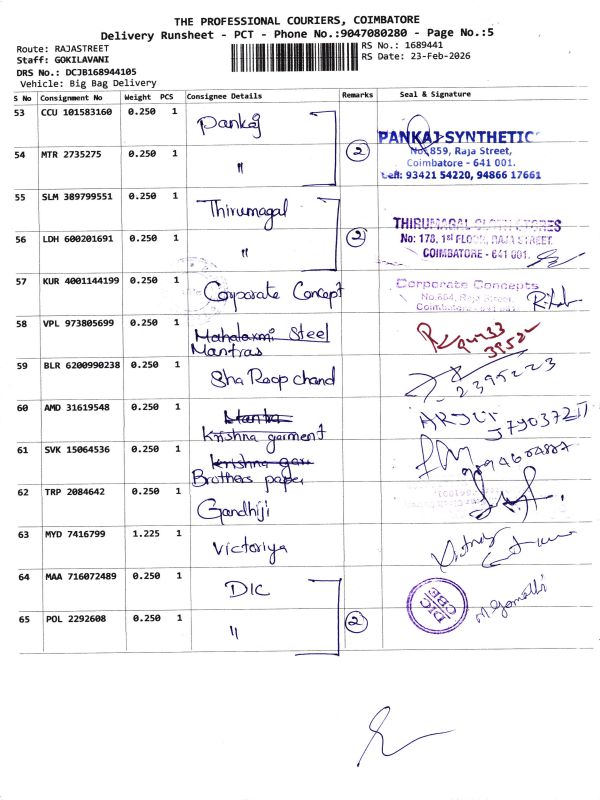 THE PROFESSIONAL COURIERS, COIMBATORE
Delivery Runsheet - PCT - Phone No.:9047080280 - Page No.:5
Route: RAJASTREET
RS No.: 1689441
Staff: GOKILAVANI
RS Date: 23-Feb-2026
DRS No.: DCJB168944105
Vehicle: Big Bag Delivery
S No Consignment No Weight PCS Consignee Details Remarks Seal & Signature
53 CCU 101583160 0.250 1 Pankaj
PANKAJ SYNTHETICS
No. 859, Raja Street,
Coimbatore - 641 001.
Cell: 93421 54220, 94866 17661
54 MTR 2735275 0.250 1 " 2
55 SLM 389799551 0.250 1 Thirumagal
THIRUMAGAL CLOTH STORES
No: 178, 1st FLOOR, RAJA STREET,
COIMBATORE - 641 001.
56 LDH 600201691 0.250 1 " 2
57 KUR 4001144199 0.250 1 Corporate Concept
Corporate Concepts
No.604, Raja Street,
58 VPL 973805699 0.250 1 Mahalaxmi Steel
Mantras
59 BLR 6200990238 0.250 1 Sha Roop chand
60 AMD 31619548 0.250 1 Mantra
Krishna garment
61 SVK 15064536 0.250 1 Krishna gar
Brothers paper
62 TRP 2084642 0.250 1 Gandhiji
63 MYD 7416799 1.225 1 Victoriya
64 MAA 716072489 0.250 1 DIC
DIC
CBE
65 POL 2292608 0.250 1 " 2